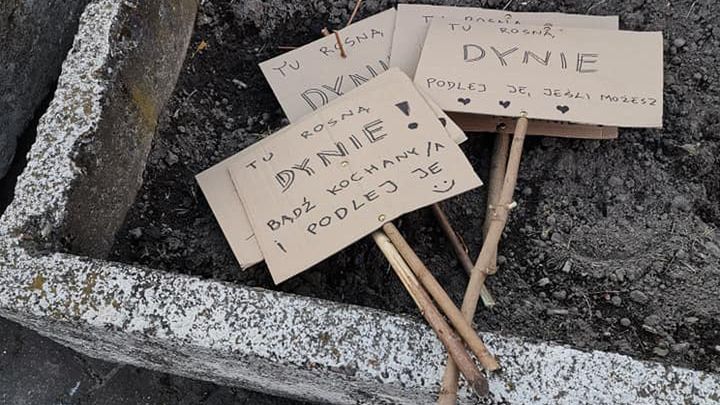 TU ROSNĄ
TU ROSNĄ
DYNIE
PODLEJ JE, JEŚLI MOŻESZ
TU ROSNĄ
DYNIE
TU ROSNĄ
DYNIE!
BĄDŹ KOCHANY/A
I PODLEJ JE